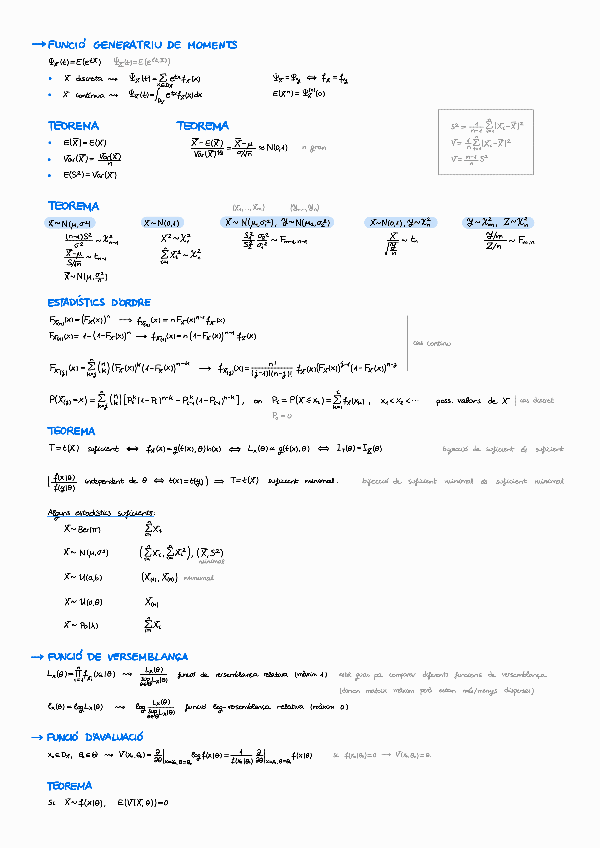 → FUNCIÓ GENERATRIU DE MOMENTS
Ψ_X(t)=E(e^{tX}) Ψ_X(t)=E(e^{t₁X₁...})
• X discreta ⇝ Ψ_X(t)=∑_{x∈D_X} e^{tx} f_X(x) Ψ_X=Ψ_Y ⟺ f_X=f_Y
• X contínua ⇝ Ψ_X(t)=∫_{D_X} e^{tx} f_X(x)dx E(X^n)=Ψ_X^{(n)}(0)
TEOREMA TEOREMA
• E(X̄)=E(X)
• Var(X̄)=Var(X)/n
• E(S²)=Var(X)
(X̄-E(X̄))/Var(X̄)^{1/2} = (X̄-μ)/(σ/√n) ≈ N(0,1) n gran
S²=1/(n-1) ∑_{i=1}^n (X_i-X̄)²
V=1/n ∑_{i=1}^n (X_i-X̄)²
V=(n-1)/n S²
TEOREMA (X₁,...,X_n) (Y₁,...,Y_m)
X~N(μ,σ²) X~N(0,1) X~N(μ₁,σ₁²), Y~N(μ₂,σ₂²) X~N(0,1), Y~χ²_n Y~χ²_m, Z~χ²_n
(n-1)S²/σ² ~ χ²_{n-1} X²~χ²₁ S₁²/S₂² σ₂²/σ₁² ~ F_{n-1,m-1} X/√(Y/n) ~ t_n (Y/m)/(Z/n) ~ F_{m,n}
(X̄-μ)/(S/√n) ~ t_{n-1} ∑_{i=1}^n X_i² ~ χ²_n
X̄~N(μ,σ²/n)
ESTADÍSTICS D'ORDRE
F_{X(n)}(x)=(F_X(x))^n ⟶ f_{X(n)}(x)=n F_X(x)^{n-1} f_X(x)
F_{X(1)}(x)=1-(1-F_X(x))^n ⟶ f_{X(1)}(x)=n(1-F_X(x))^{n-1} f_X(x)
cas continu
F_{X(j)}(x)=∑_{k=j}^n (n k)(F_X(x))^k(1-F_X(x))^{n-k} ⟶ f_{X(j)}(x)=n!/((j-1)!(n-j)!) f_X(x)(F_X(x))^{j-1}(1-F_X(x))^{n-j}
P(X_{(j)}=x_i)=∑_{k=j}^n (n k)[P_i^k(1-P_i)^{n-k}-P_{i-1}^k(1-P_{i-1})^{n-k}], on P_i=P(X≤x_i)=∑_{k=1}^i f_X(x_k), x₁<x₂<⋯ poss. valors de X cas discret
P₀=0
TEOREMA
T=t(X) suficient ⟺ f_X(x)=g(t(x),θ)h(x) ⟺ L_x(θ)∝g(t(x),θ) ⟺ I_T(θ)=I_X(θ) bijecció de suficient és suficient
f(x|θ)/f(y|θ) independent de θ ⟺ t(x)=t(y) ⟹ T=t(X) suficient minimal. bijecció de suficient minimal és suficient minimal
Alguns estadístics suficients:
X~Ber(π) ∑_{i=1}^n X_i
X~N(μ,σ²) (∑_{i=1}^n X_i, ∑_{i=1}^n X_i²), (X̄,S²)
minimal
X~U(a,b) (X_{(1)}, X_{(n)}) minimal
X~U(0,θ) X_{(n)}
X~Po(λ) ∑_{i=1}^n X_i
→ FUNCIÓ DE VERSEMBLANÇA
L_x(θ)=∏_{i=1}^n f_{X_i}(x_i|θ) ⇝ L_x(θ)/sup_{θ∈Θ}L_x(θ) funció de versemblança relativa (màxim 1) per comparar diferents funcions de versemblança
(donen mateix màxim però estan més/menys disperses)
ℓ_x(θ)=log L_x(θ) ⇝ log L_x(θ)/sup_{θ∈Θ}L_x(θ) funció log-versemblança relativa (màxim 0)
→ FUNCIÓ D'AVALUACIÓ
x₀∈D_X, θ₀∈Θ ⇝ V(x₀,θ₀)=∂/∂θ|_{x=x₀,θ=θ₀} log f(x|θ)=1/f(x₀|θ₀) ∂/∂θ|_{x=x₀,θ=θ₀} f(x|θ) Si f(x₀|θ₀)=0 ⟶ V(x₀,θ₀)=0
TEOREMA
Si X~f(x|θ), E(V(X,θ))=0